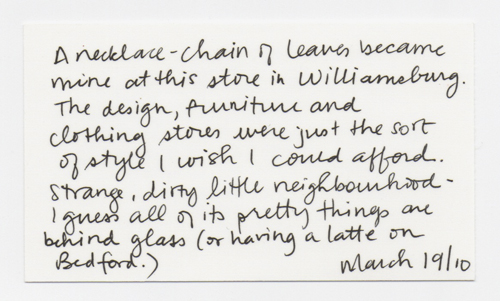 A necklace-chain of leaves became
mine at this store in Williamsburg.
The design, furniture and
clothing stores were just the sort
of style I wish I could afford.
Strange, dirty little neighbourhood-
I guess all of its pretty things are
behind glass (or having a latte on
Bedford.)
March 19/10